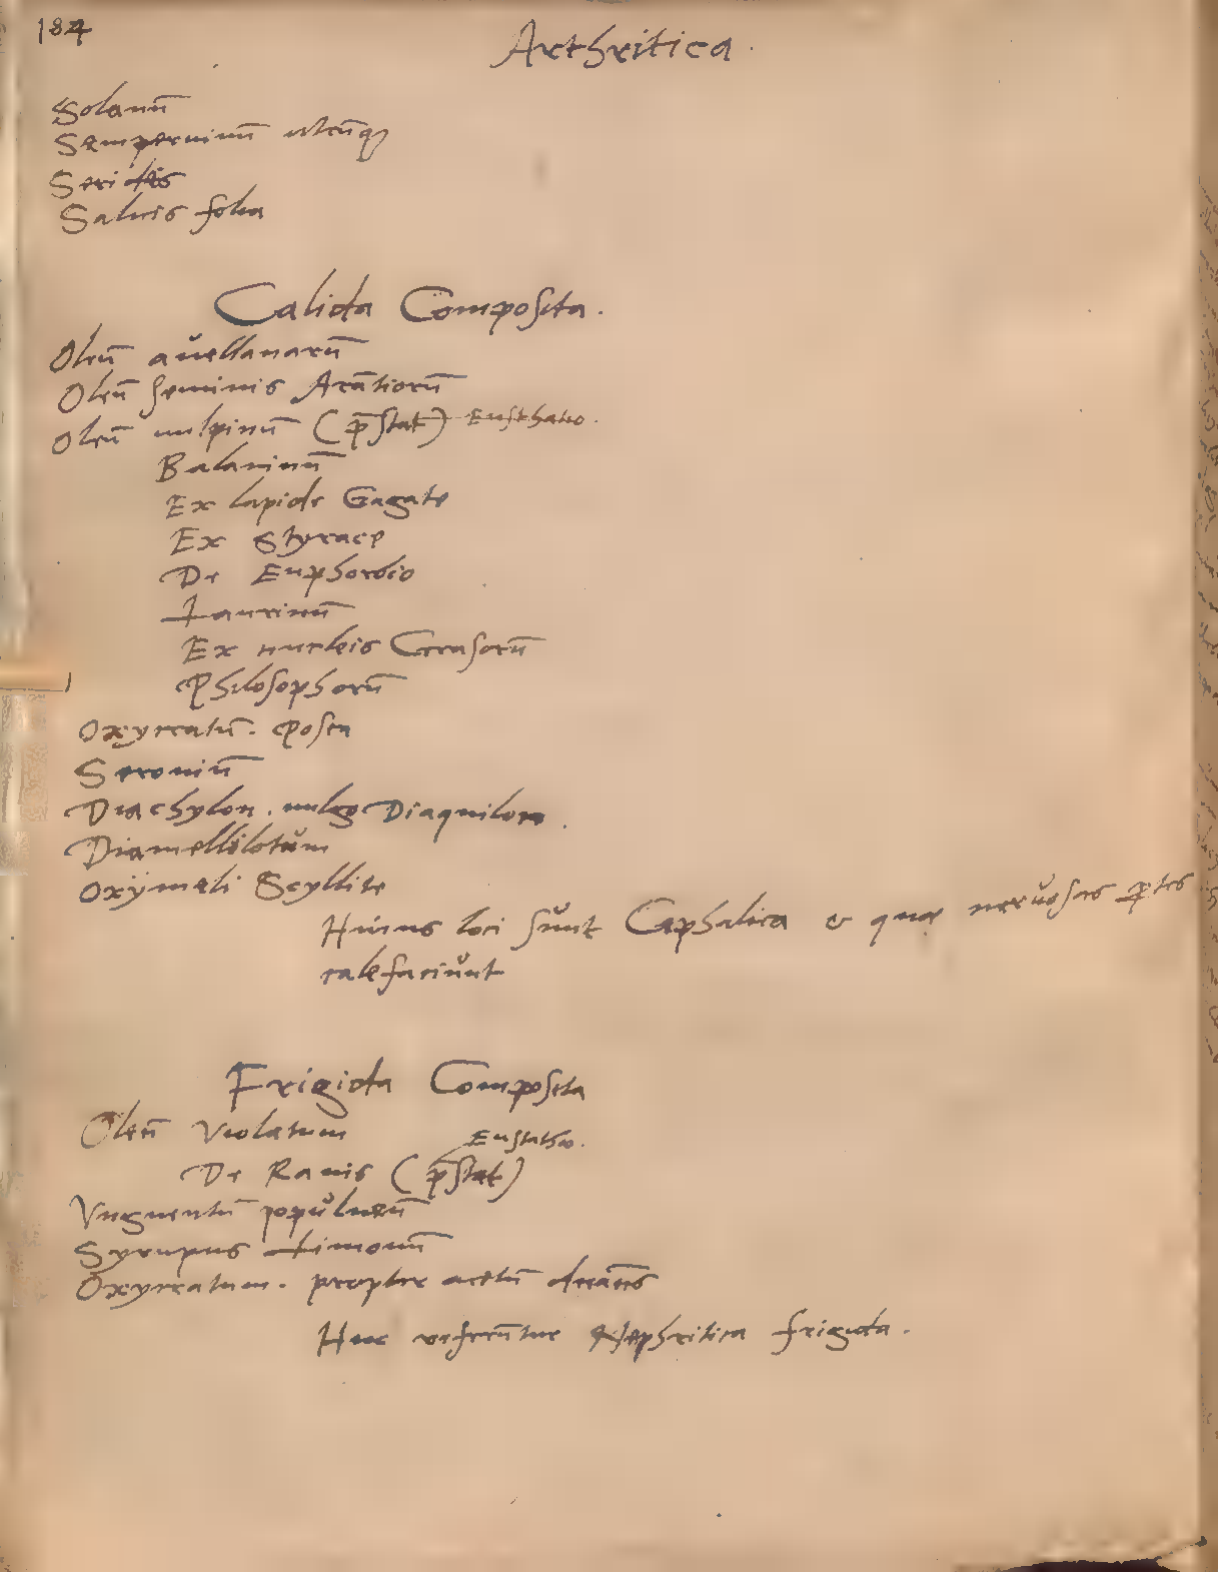 184
Arthritica.
Solanū
Semperuiuū utcūq
Seridis
Saluis folia
Calida Composita.
Oleū aŭellanarū
Oleū seminis Arātiorū
Oleū uulpinū (p̄stat) Eusthatio.
Balaninū
Ex lapide Gagate
Ex Styrace
De Euphorbio
Laurinū
Ex nucleis Cerasorū
Philosophorū
Oxycratū. Posca
Seroniū
Diachylon. uulgo Diaquilon.
Diamellilotŭm
Oxÿmeli Scyllite
Huius loci sŭnt Cephalica & quae nerŭosas ptes
calefaciŭnt
Frigida Composita
Oleū Violatum
Eustatho.
De Ranis (p̄stat)
Vnguentū popŭlneū
Syrupus Limonū
Oxycratum. propter acetū
Huc referūtur Nephritica frigida.